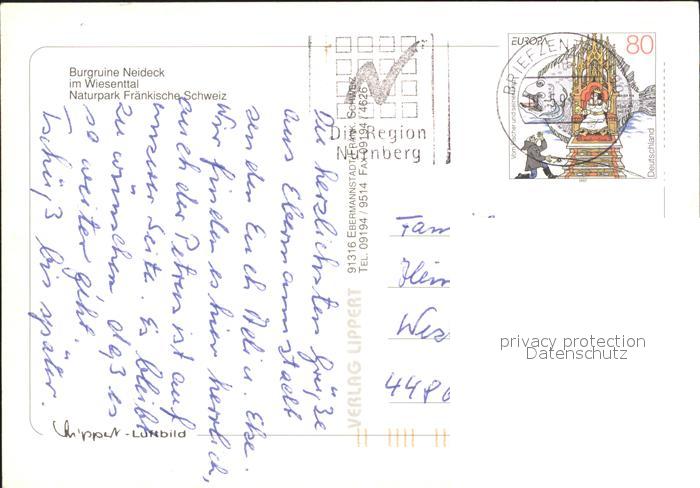 Burgruine Neideck
im Wiesenttal
Naturpark Fränkische Schweiz
Die herzlichsten Grüße
aus Ebermannstadt
senden Euch
Wir finden es hier herrlich,
auch der Petrus ist auf
unserer Seite. Es bleibt
zu wünschen daß es
so weiter geht.
Tschüß bis später.
Lippert - Luftbild
VERLAG LIPPERT
91316 EBERMANNSTADT/FRÄNK. SCHWEIZ
TEL. 09194 / 9514 FAX 09194 / 4626
Die Region
Nürnberg
BRIEFZEN
EUROPA
80
Deutschland
Fam
Hein
Wes
4480
privacy protection
Datenschutz